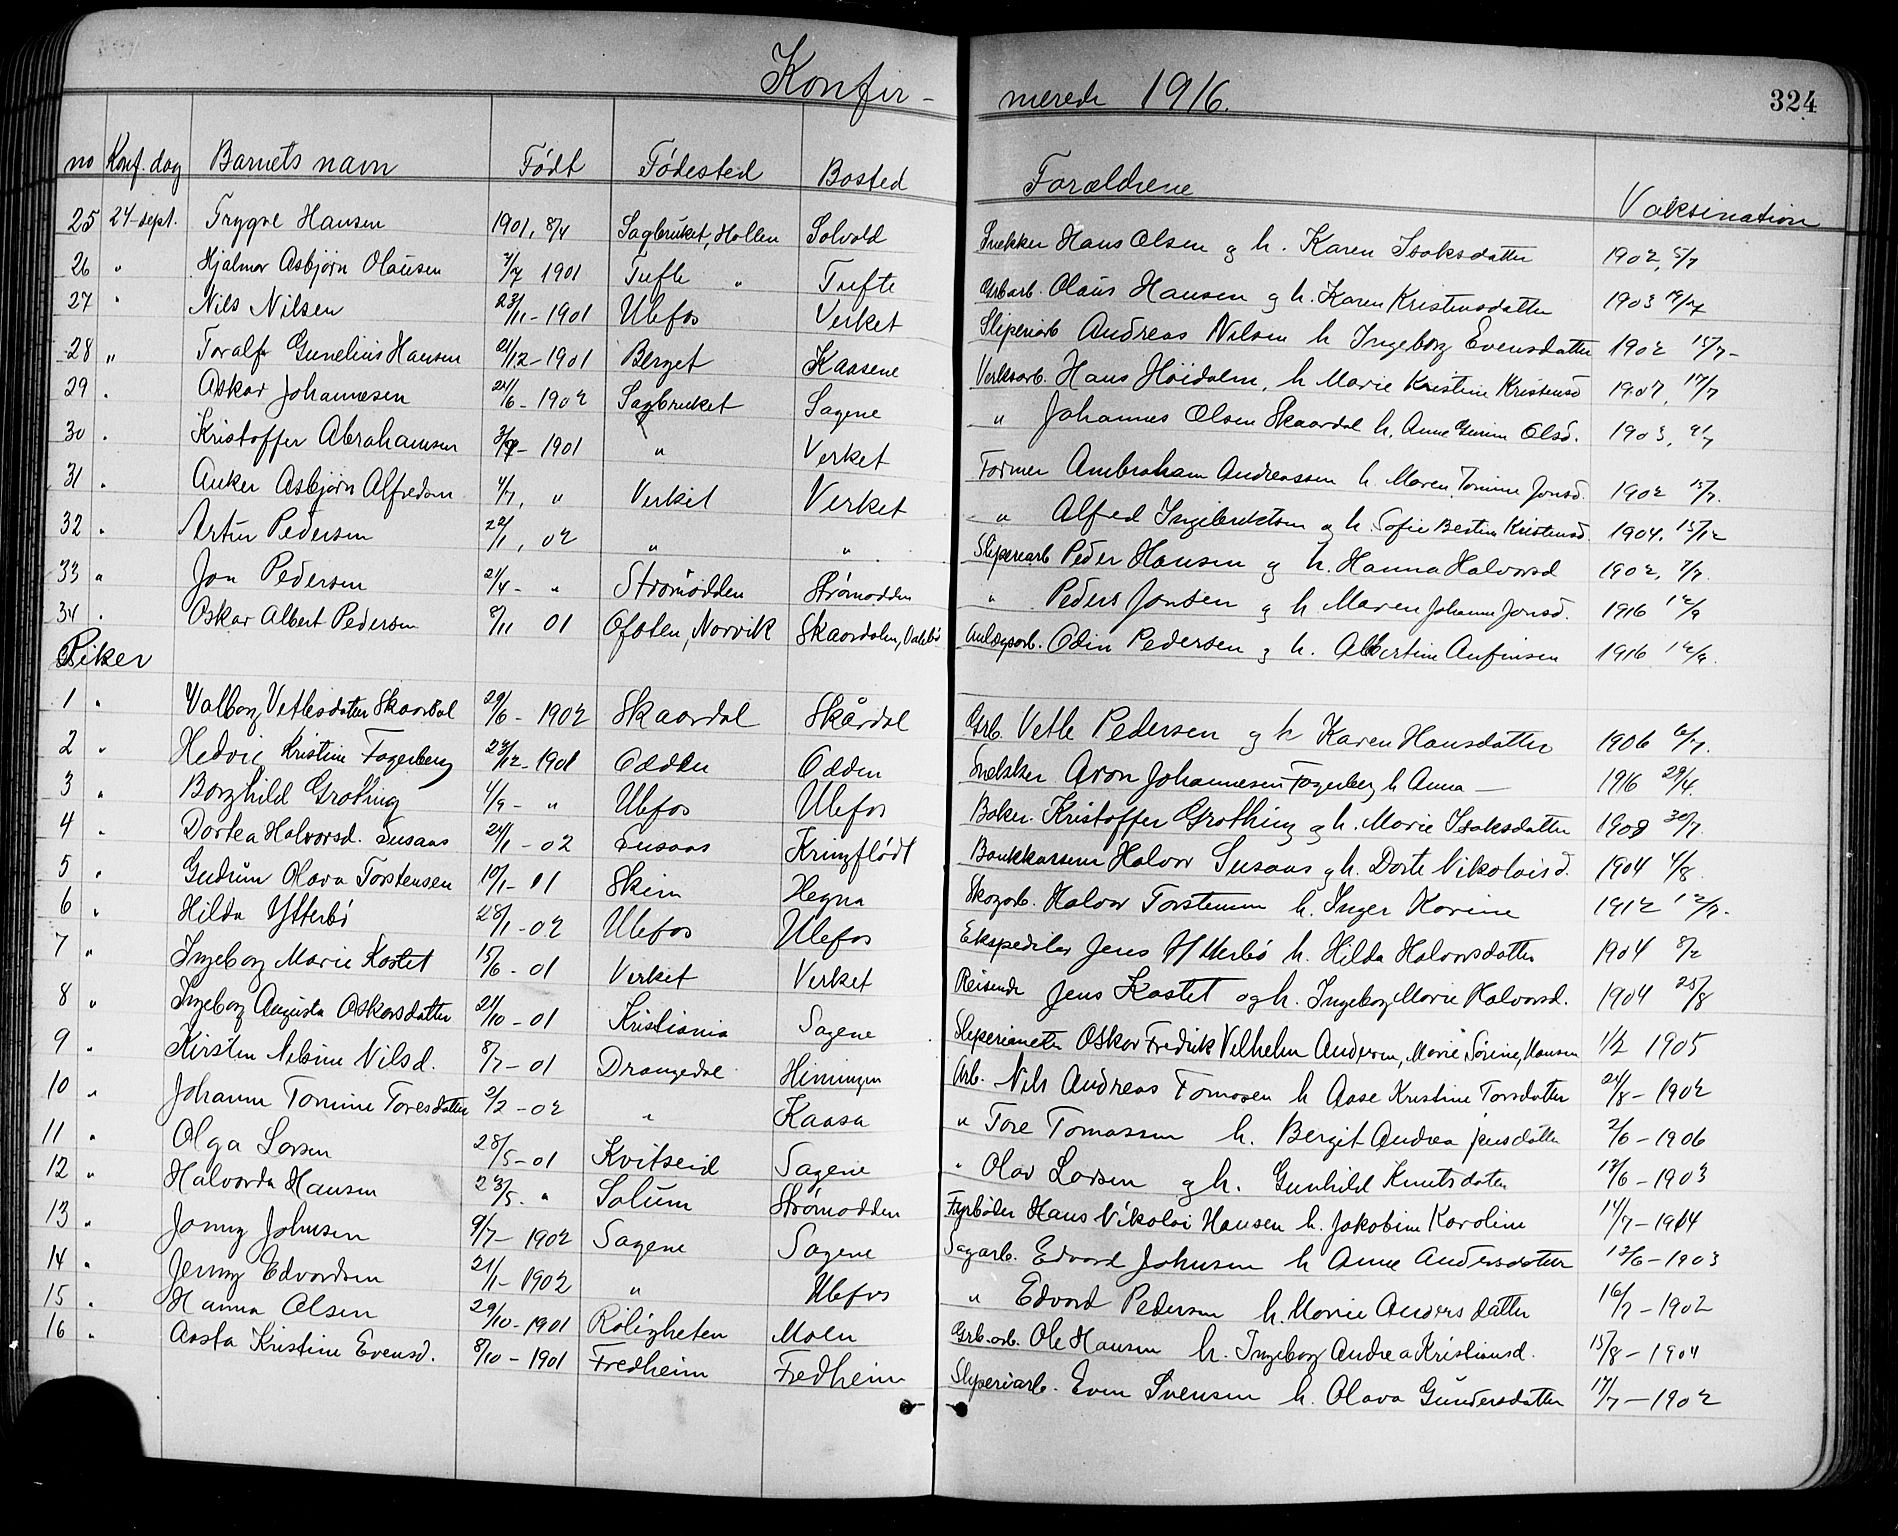 Konfir- merede 1916.
324
no Konf. dag Barnets navn Født Fødested Bosted Forældrene Vaksination
25 24-sept. Trygve Hansen 1901, 8/4 Sagbruket, Hollen Solvold Snekker Hans Olsen g h. Karen Isaksdatter 1902, 5/7
26 " Hjalmar Asbjørn Olausen 7/7 1901 Tufte " Tufte Grbarb. Olaus Hansen g h. Karen Kristensdatter 1903
27 " Nils Nilsen 23/11-1901 Ulefos Verket Sliperiarb Andreas Nilsen h Ingeborg Evensdatter 1902 15/7-
28 " Toralf Gunelius Hansen 21/12-1901 Berget Kaasene Verksarb. Hans Høidalen, h Marie Kristine Kristensd 1907, 17/7
29 " Askar Johannesen 21/6-1902 Sagbruket Sagene " Johannes Olsen Skaardal h. Anne Olsd. 1903,
30 " Kristoffer Abrahamsen 1901 " Verket Former Ambraham Andreassen h. Maren Tomine Jonsd. 1902 15/7.
31 " Anker Asbjørn Alfredsen 4/7, " Verket Verket " Alfred Ingebrektsen g h Sofie Bertine Kristensd. 1904, 15/12
32 " Artur Pedersen 22/1, 02 " " Sliperiarb Peder Hansen g h. Hanna Halvorsd 1902, 7/7.
33 " Jon Pedersen 21/4- " Strømodden Strømodden " Peder Jonsen g h Maren Johanne Jonsd. 1916 12/9
34 " Oskar Albert Pedersen 8/11 01 Ofoten, Norvik Skaardalen, Valebø Anlægsarb. Odin Pedersen g h. Albertine Anfinsen 1916 12/9.
Piker
1 " Valborg Vetlesdatter Skaardal 29/6-1902 Skaardal Skårdal Grb. Vetle Pedersen g h Karen Hansdatter 1906 6/7.
2 " Hedvig Kristine Fagerberg 23/12-1901 Odden Odden Snekker Aron Johannesen Fagerberg h Anna - 1916 29/4.
3 " Borghild Grothing 4/9- " Ulefos Ulefos Baker. Kristoffer Grothing g h. Marie Isaksdatter 1908 30/7.
4 " Dortea Halvorsd. Susaas 24/1-02 Susaas Kringflødt Bankkasserer Halvor Susaas g h. Dorte Nikolaisd. 1904 4/8.
5 " Gudrun Olava Torstensen 10/1-01 Skien Hegna Skogarb. Halvor Torstensen h. Inger Karine 1912 12/7.
6 " Hilda Ytterbø 28/1-02 Ulefos Ulefos Ekspeditør Jens Ytterbø h. Hilda Halvorsdatter 1904 8/2
7 " Ingeborg Marie Kastet 15/6-01 Verket Verket Reisende Jens Kastet og h. Ingeborg Marie Halvorsd. 1904 25/8
8 " Ingeborg Augusta Oskarsdatter 21/10-01 Kristiania Sagene Oskar Fredrik Vilhelm Andersen, Marie Sørine, Hansen 1/2 1905
9 " Kirsten Nilsine Nilsd. 8/7-01 Drangedal Heiningen Arb. Nils Andreas Tomasen h Aase Kristine Torsdatter 21/8-1902
10 " Johanne Tomine Toresdatter 2/2-02 " Kaasa " Tore Tomassen h. Bergit Andrea Jensdatter 2/6-1906
11 " Olga Larsen 28/5-01 Kvitseid Sagene " Olav Larsen g h. Gunhild Knutsdatter 12/6-1903
12 " Halvarda Hansen 23/5. " Solum Strømodden Fyrbøter Hans Nikolai Hansen h. Jakobine Karoline 14/7-1914
13 " Jonny Johnsen 9/7-1902 Sagene Sagene Sagarb. Edvard Johnsen h Anne Andersdatter 12/6-1903
14 " Jenny Edvardsen 21/1-1902 " Ulefos " Edvard Pedersen h. Marie Andersdatter 16/7-1902
15 " Hanna Olsen 29/10-1901 Roligheten Moen Grb.arb. Ole Hansen h. Ingeborg Andrea Kristiansd. 15/8-1904
16 " Aasta Kristine Evensd. 8/10-1901 Fredheim Fredheim Sliperiarb. Even Svensen h. Olava Gundersdatter 17/7-1902